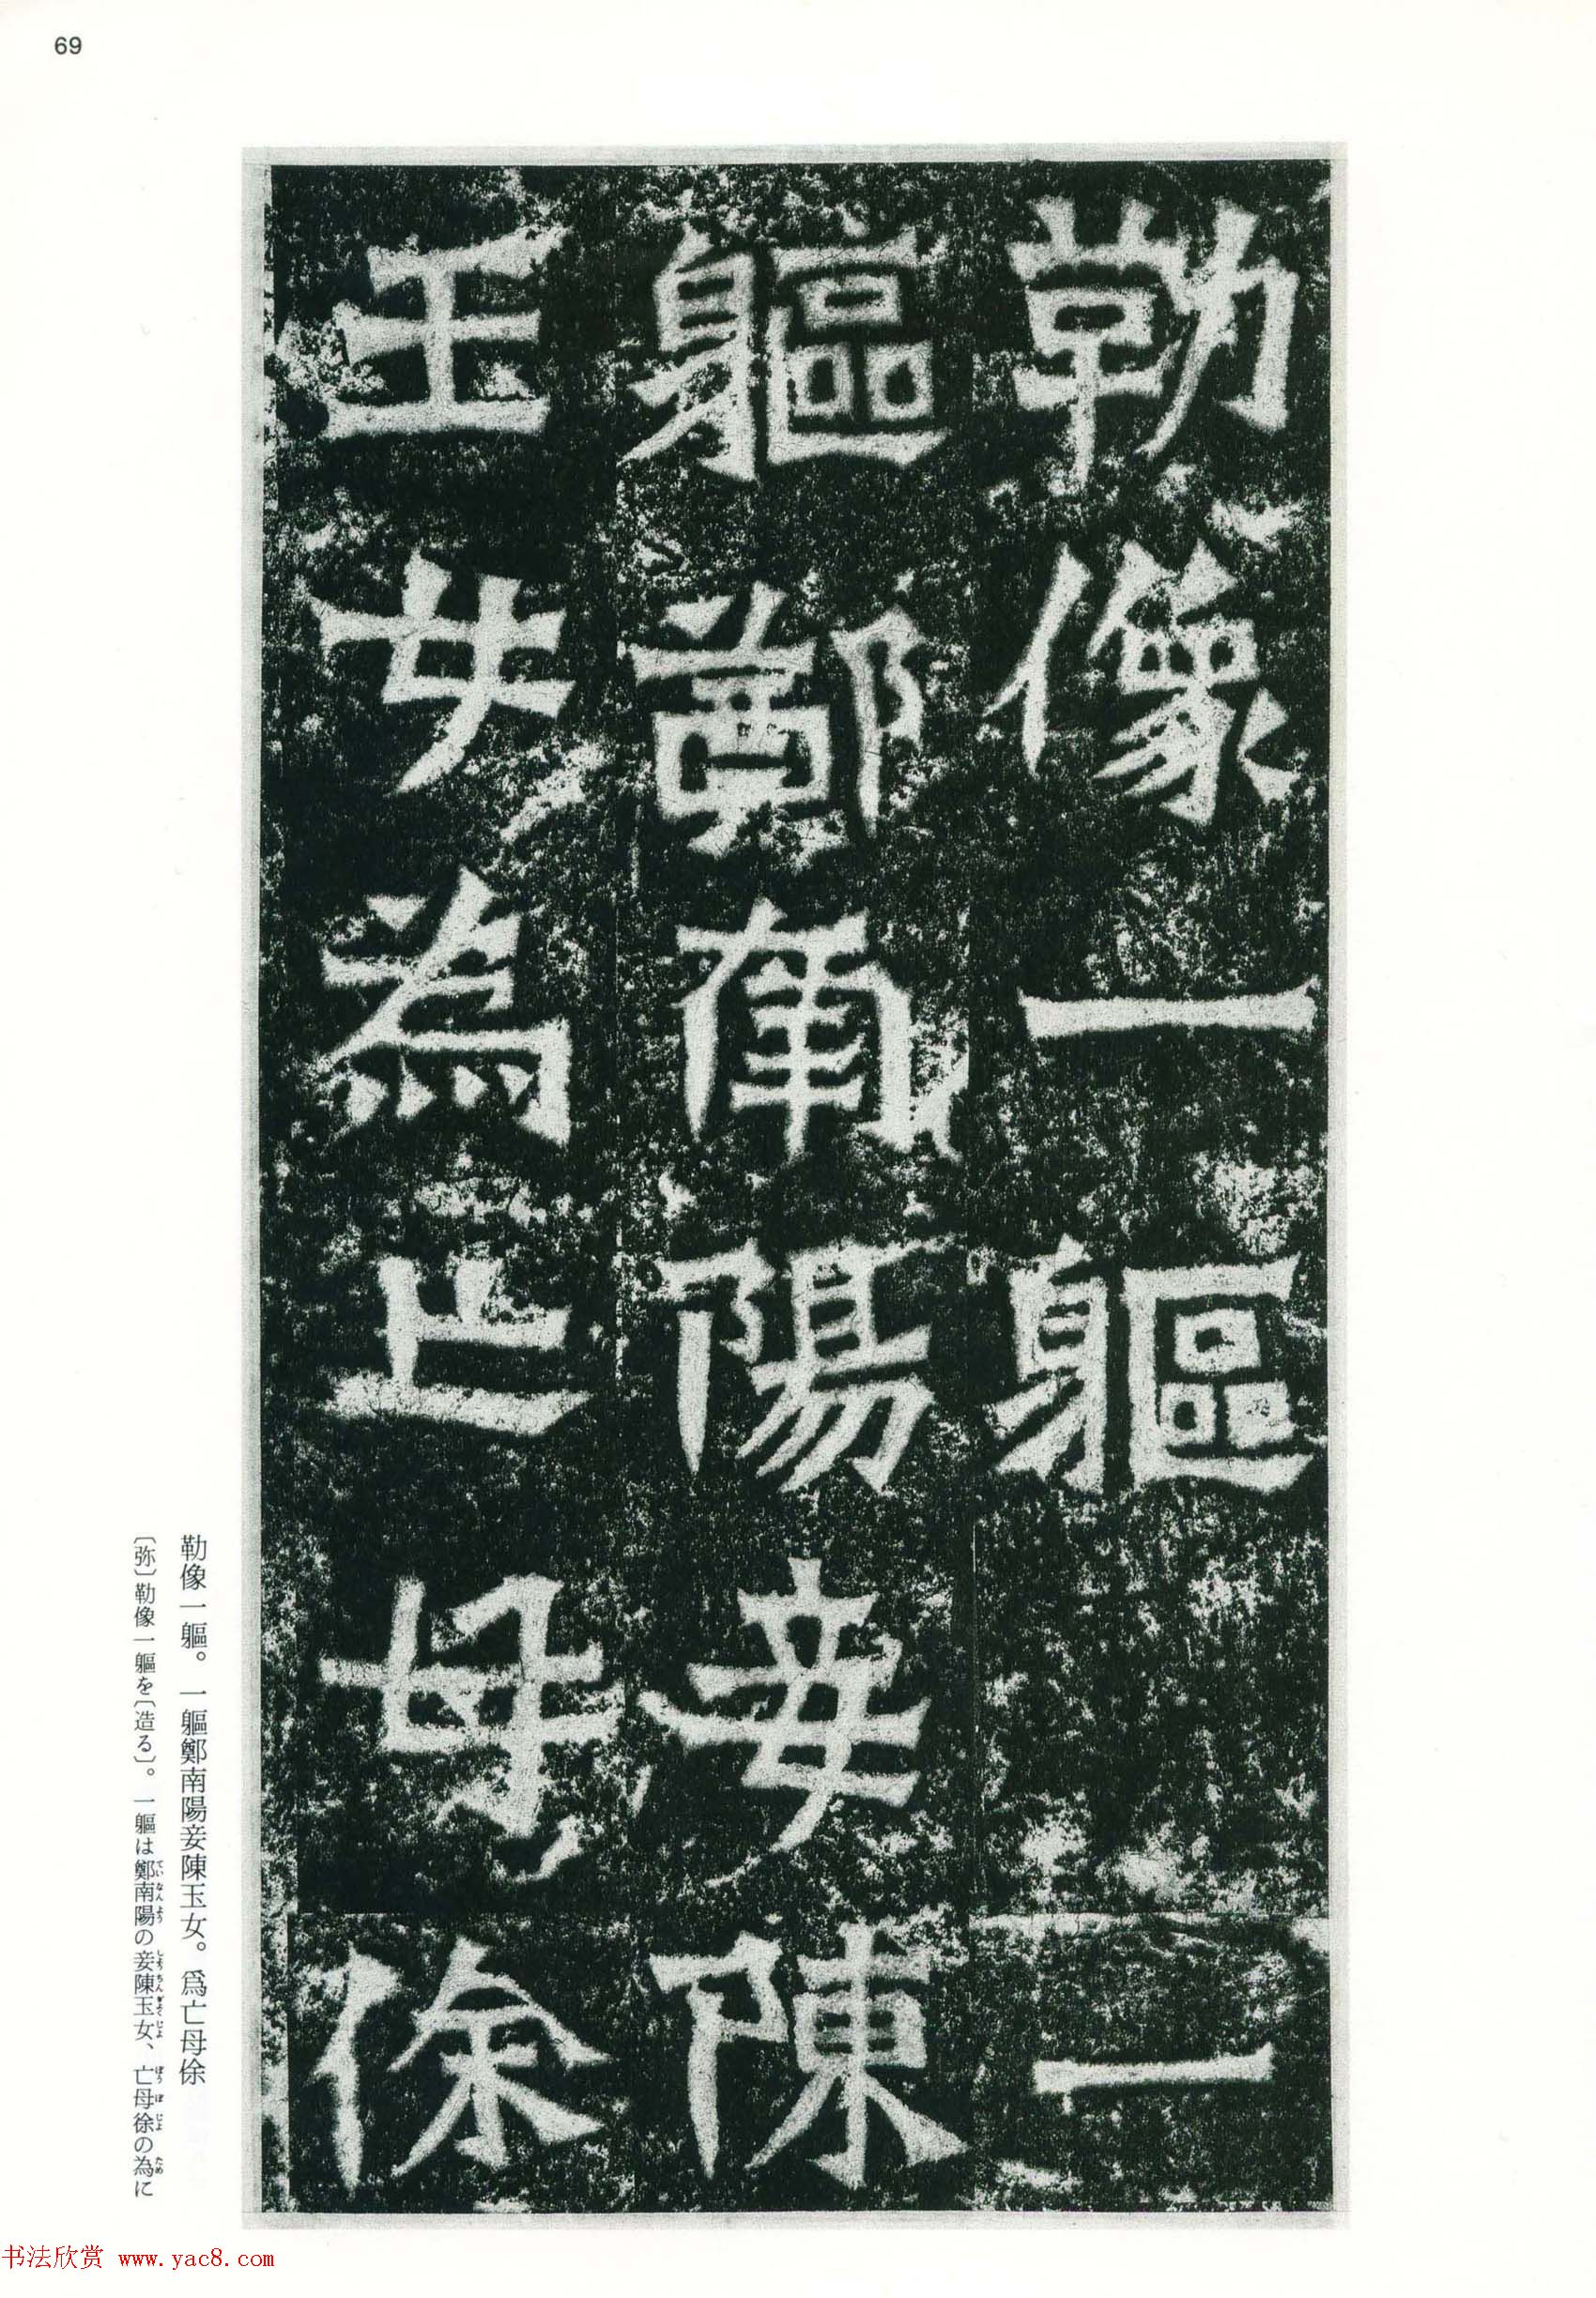 69
勒像一軀一
軀鄭南陽妾陳
玉女為亡母徐
勒像一軀。一軀鄭南陽妾陳玉女。爲亡母徐
〔弥〕勒像一軀を〔造る〕。一軀は鄭南陽の妾陳玉女、亡母徐の為に
书法欣赏 www.yac8.com